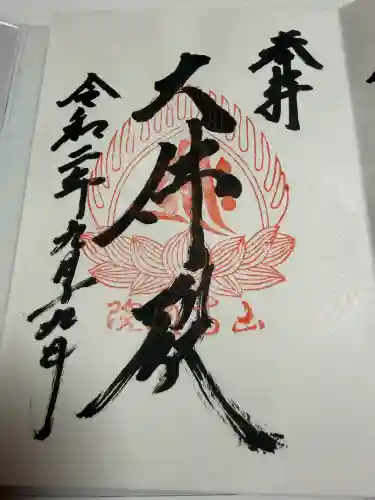 奉拝
大佛殿
令和二年九月十九日